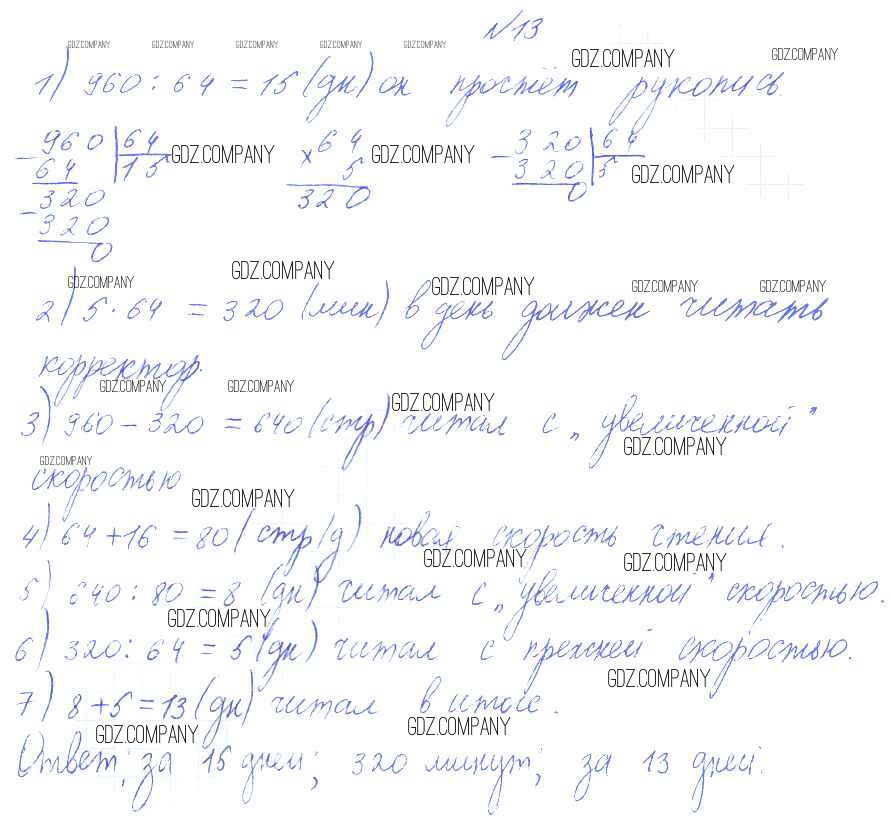 №13
GDZ.COMPANY GDZ.COMPANY GDZ.COMPANY GDZ.COMPANY GDZ.COMPANY GDZ.COMPANY GDZ.COMPANY
1) 960 : 64 = 15 (дн) он прочтёт рукопись.
- 960 | 64 GDZ.COMPANY × 64 GDZ.COMPANY - 320 | 64
64 15 5 320 5 GDZ.COMPANY
- 320 320 0
320
0
GDZ.COMPANY GDZ.COMPANY GDZ.COMPANY GDZ.COMPANY GDZ.COMPANY
2) 5 · 64 = 320 (мин) в день должен читать
корректор.
GDZ.COMPANY GDZ.COMPANY GDZ.COMPANY
3) 960 - 320 = 640 (стр) читал с „увеличенной"
GDZ.COMPANY GDZ.COMPANY
скоростью
GDZ.COMPANY
4) 64 + 16 = 80 (стр/д) новая скорость чтения.
GDZ.COMPANY GDZ.COMPANY
5) 640 : 80 = 8 (дн) читал с „увеличенной" скоростью.
GDZ.COMPANY
6) 320 : 64 = 5 (дн) читал с прежней скоростью.
GDZ.COMPANY
7) 8 + 5 = 13 (дн) читал в итоге.
GDZ.COMPANY GDZ.COMPANY
Ответ: за 15 дней; 320 минут; за 13 дней.